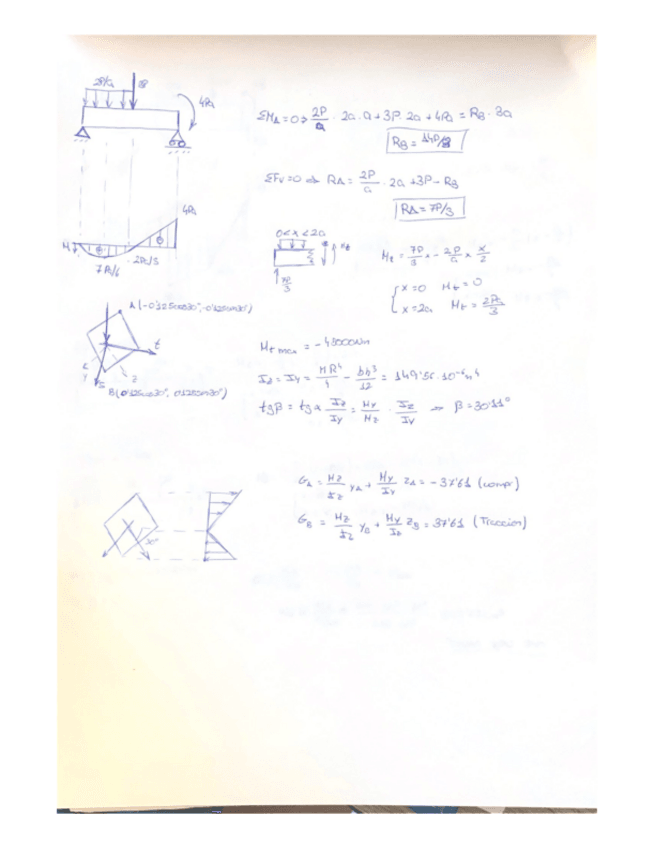 2P/a 3P
4Pa
ΣM_A = 0 ⇒ 2P/a · 2a · a + 3P · 2a + 4Pa = R_B · 3a
R_B = 14P/3
ΣFv = 0 ⇒ R_A = 2P/a · 2a + 3P - R_B
R_A = 7P/3
4Pa
7P/6
2Pa/3
0 < x < 2a
7P/3
M_t = 7P/3 x - 2P/a x x/2
x = 0 M_t = 0
x = 2a M_t = 2Pa/3
A (-0'125cos30°, -0'125cos30°)
t
z
B (0'125cos30°, 0'125cos30°)
M_t max = -48000Nm
I_z = I_y = πR⁴/4 - bh³/12 = 149'56·10⁻⁶ m⁴
tgβ = tgα I_z/I_y = M_y/M_z · I_z/I_y ⇒ β = 30'11°
30°
σ_A = M_z/I_z y_A + M_y/I_y z_A = -37'61 (compr)
σ_B = M_z/I_z y_B + M_y/I_z z_B = 37'61 (Traccion)